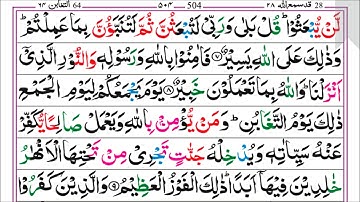 28 قدسمع الله ٢٨ 504 ٥٠٤ 64 التغابن ٦٤
لَّنۡ يُّبۡعَثُوۡا ؕ قُلۡ بَلٰى وَرَبِّىۡ لَـتُبۡعَـثُـنَّ ثُمَّ لَـتُنَبَّـؤُنَّ بِمَا عَمِلۡـتُمۡ ؕ
وَذٰ لِكَ عَلَى اللّٰهِ يَسِيۡرٌ ﴿۷﴾ فَاٰمِنُوۡا بِاللّٰهِ وَرَسُوۡلِهٖ وَالنُّوۡرِ الَّذِىۡۤ
اَنۡزَلۡنَا ؕ وَاللّٰهُ بِمَا تَعۡمَلُوۡنَ خَبِيۡرٌ ﴿۸﴾ يَوۡمَ يَجۡمَعُكُمۡ لِيَوۡمِ الۡجَمۡعِ
ذٰ لِكَ يَوۡمُ التَّغَابُنِ ؕ وَمَنۡ يُّؤۡمِنۡۢ بِاللّٰهِ وَيَعۡمَلۡ صَالِحًـا يُّكَفِّرۡ
عَنۡهُ سَيِّاٰتِهٖ وَيُدۡخِلۡهُ جَنّٰتٍ تَجۡرِىۡ مِنۡ تَحۡتِهَا الۡاَنۡهٰرُ
خٰلِدِيۡنَ فِيۡهَاۤ اَبَدًا ؕ ذٰ لِكَ الۡفَوۡزُ الۡعَظِيۡمُ ﴿۹﴾ وَالَّذِيۡنَ كَفَرُوۡا